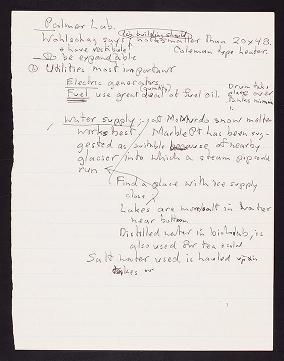 Palmer Lab.
Wohlschag says building should not be smaller than 20x48.
& have vestibule Coleman type heater.
be expandable
① Utilities most important
Electric generators (quantity)
Fuel use great deal of fuel oil.
Drum take
place over
tanks
Water supply: at McMurdo snow melter
works best, Marble Pt has been sug-
gested as suitable because of nearby
glacier into which a steam pipe could
run
Find a place with ice supply
close
Lakes are more salt in water
near bottom
Distilled water in biolab, is
also used for tea
Salt water used is hauled up in